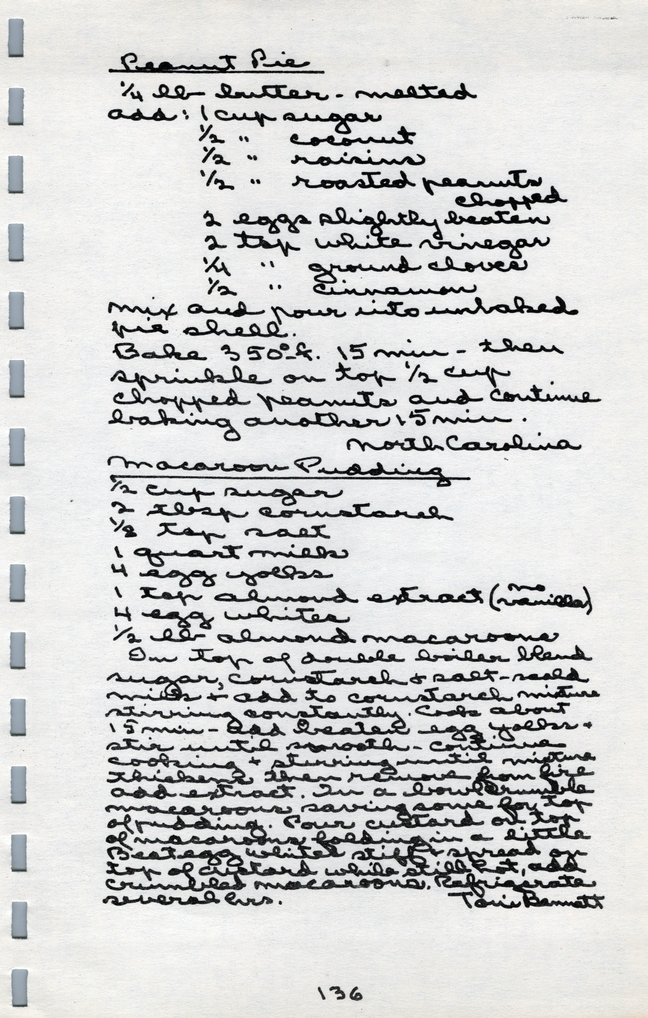 Peanut Pie
1/4 lb butter - melted
add: 1 cup sugar
1/2 " coconut
1/2 " raisins
1/2 " roasted peanuts
chopped
2 eggs slightly beaten
2 tsp white vinegar
1/4 " ground cloves
1/2 " cinnamon
mix and pour into unbaked
pie shell.
Bake 350°f. 15 min - then
sprinkle on top 1/2 cup
chopped peanuts and continue
baking another 15 min.
North Carolina
Macaroon Pudding
1/2 cup sugar
2 tbsp cornstarch
1/8 tsp salt
1 quart milk
4 egg yolks
1 tsp almond extract (no vanilla)
4 egg whites
1/2 lb almond macaroons
In top of double boiler blend
sugar, cornstarch + salt - scald
milk + add to cornstarch mixture
stirring constantly. Cook about
15 min - add beaten egg yolks +
stir until smooth - continue
cooking + stirring until mixture
thickens. Then remove from fire
add extract. In a bowl crumble
macaroons saving some for top
of pudding. Pour custard on top
of macaroons folding in a little
Beat egg whites stiff + spread on
top of custard while still hot, add
crumbled macaroons. Refrigerate
several hrs. Toni Bennett
136